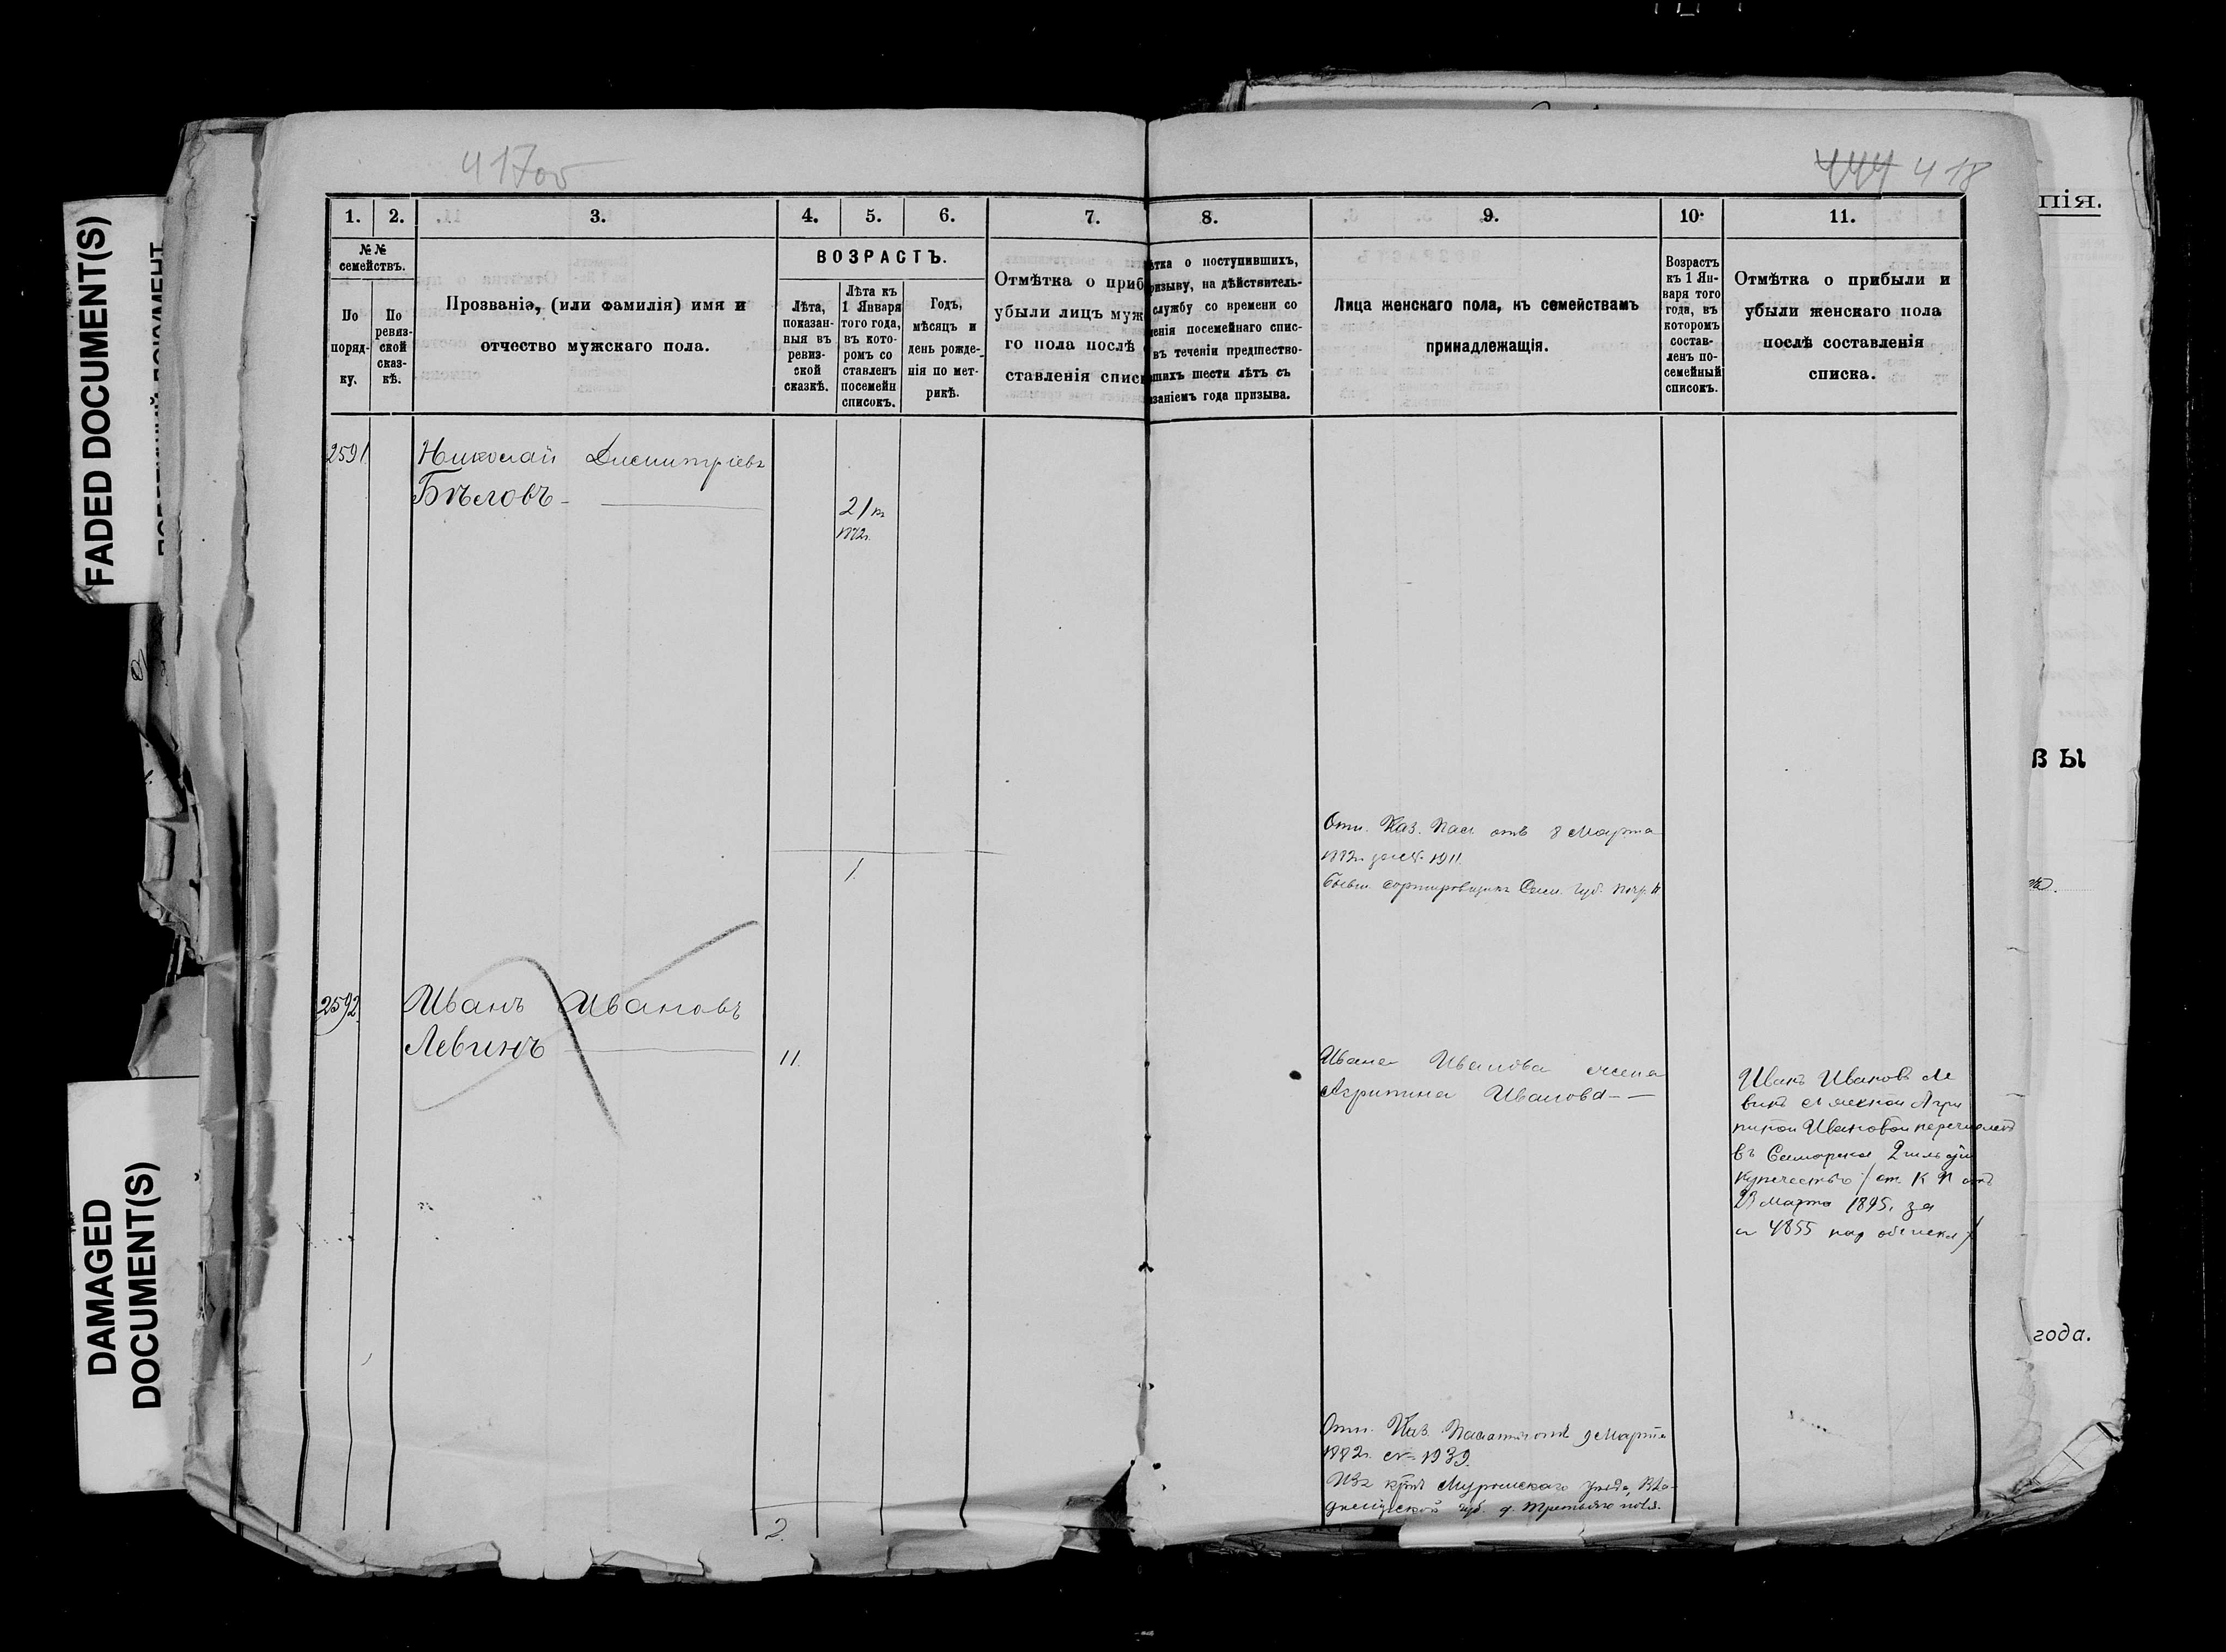 417об
444 418
FADED DOCUMENT(S)
DAMAGED
DOCUMENT(S)
1. 2. 3. 4. 5. 6. 7. 8. 9. 10. 11.
№№
семействъ.
По
поряд-
ку.
По
ревиз-
ской
сказ-
кѣ.
Прозванія, (или фамилія) имя и
отчество мужскаго пола.
ВОЗРАСТЪ.
Лѣта,
показан-
ныя въ
ревиз-
ской
сказкѣ.
Лѣта къ
1 Января
того года,
въ кото-
ромъ со
ставленъ
посемейн
списокъ.
Годъ,
мѣсяцъ и
день рожде-
нія по мет-
рикѣ.
Отмѣтка о приб
убыли лицъ муж
го пола послѣ
ставленія списк
ѣтка о поступившихъ,
ризыву, на дѣйствитель-
службу со времени со
ленія посемейнаго спис-
въ теченіи предшество-
шихъ шести лѣтъ съ
азаніемъ года призыва.
Лица женскаго пола, къ семействамъ
принадлежащія.
Возрастъ
къ 1 Ян-
варя того
года, въ
которомъ
состав-
ленъ по-
семейный
списокъ.
Отмѣтка о прибыли и
убыли женскаго пола
послѣ составленія
списка.
2591. Николай Дмитріевъ
Бѣловъ
21
1.
Отн. Каз. Пал отъ 8 Марта
1882г. за № 1911.
бывш. сортировщикъ Сам. Губ.
2592. Иванъ Ивановъ
Левинъ 11.
Ивана Иванова жена
Агрипина Иванова
Иванъ Ивановъ Ле
винъ съ женой Агри
пиной Ивановой перечисленъ
въ Самарское 2 гильдіи
купечество / от. К П отъ
Марта 1895г. за
№ 4855
Отн. Каз. Палаты отъ 9 Марта
1882г. № 1939.
Изъ кр. Муромскаго уѣзда, Вла-
димірской губ. д.
2.
пія.
вы
года.